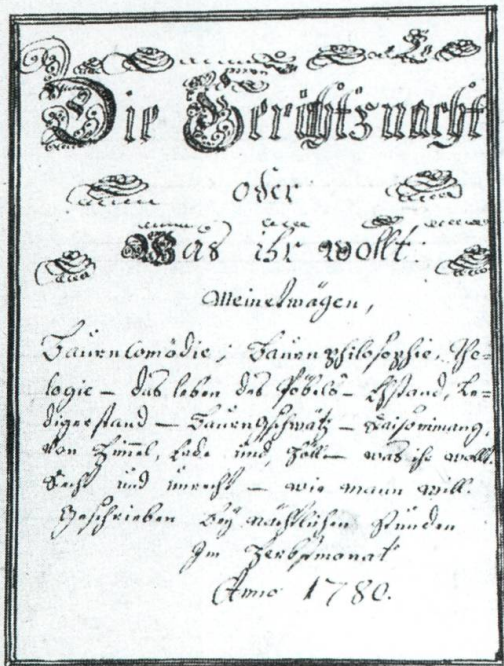 Die Gerichtsnacht
oder
Was ihr wollt.
Meinetwägen,
Baurencomödie, Baurenphilosophie, The-
logie – das leben des Pöbels – Ehstand, Le-
digerstand – Baurengschwätz – Raisonimang,
von Himel, Erde und Höll – was ihr wollt.
Recht und unrecht – wie mann will.
Geschrieben bey nächtlichen Stunden
Im Herbstmonat
Anno 1780.